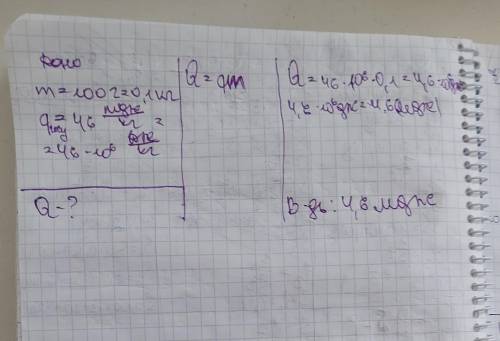 Дано
m = 100 г = 0,1 кг
q = 46 мдж/кг =
= 46 · 10⁶ дж/кг
Q - ?
Q = qm
Q = 46 · 10⁶ · 0,1 = 4,6 · 10⁶ дж
4,6 · 10⁶ дж = 4,6 (мдж)
В-дь: 4,6 мдж